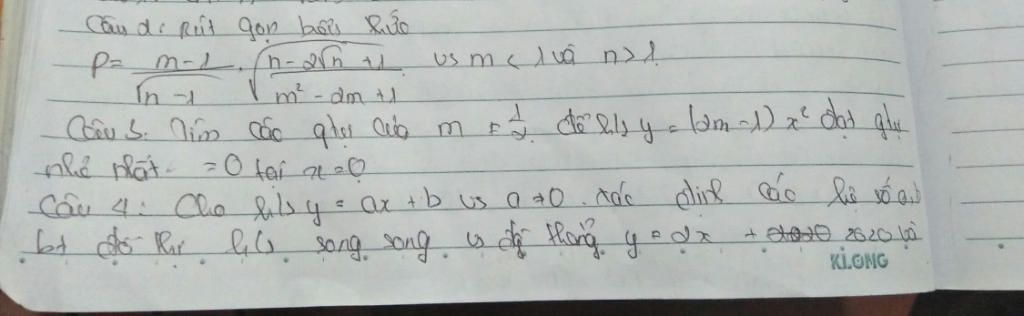 Câu 2: Rút gọn biểu thức
P = \frac{m-1}{\sqrt{n}-1} . \sqrt{\frac{n-2\sqrt{n}+1}{m²-2m+1}} vs m < 1 và n > 1.
Câu 3. Tìm các gtrị của m ≠ \frac{1}{2} để h/s y = (2m-1)x² đạt gtrị
nhỏ nhất = 0 tại x = 0
Câu 4: Cho h/s y = ax + b vs a ≠ 0. xác định các hệ số a,b
bt đồ thị h/s song song vs đg thẳng y = 2x + 2020 và
KLONG